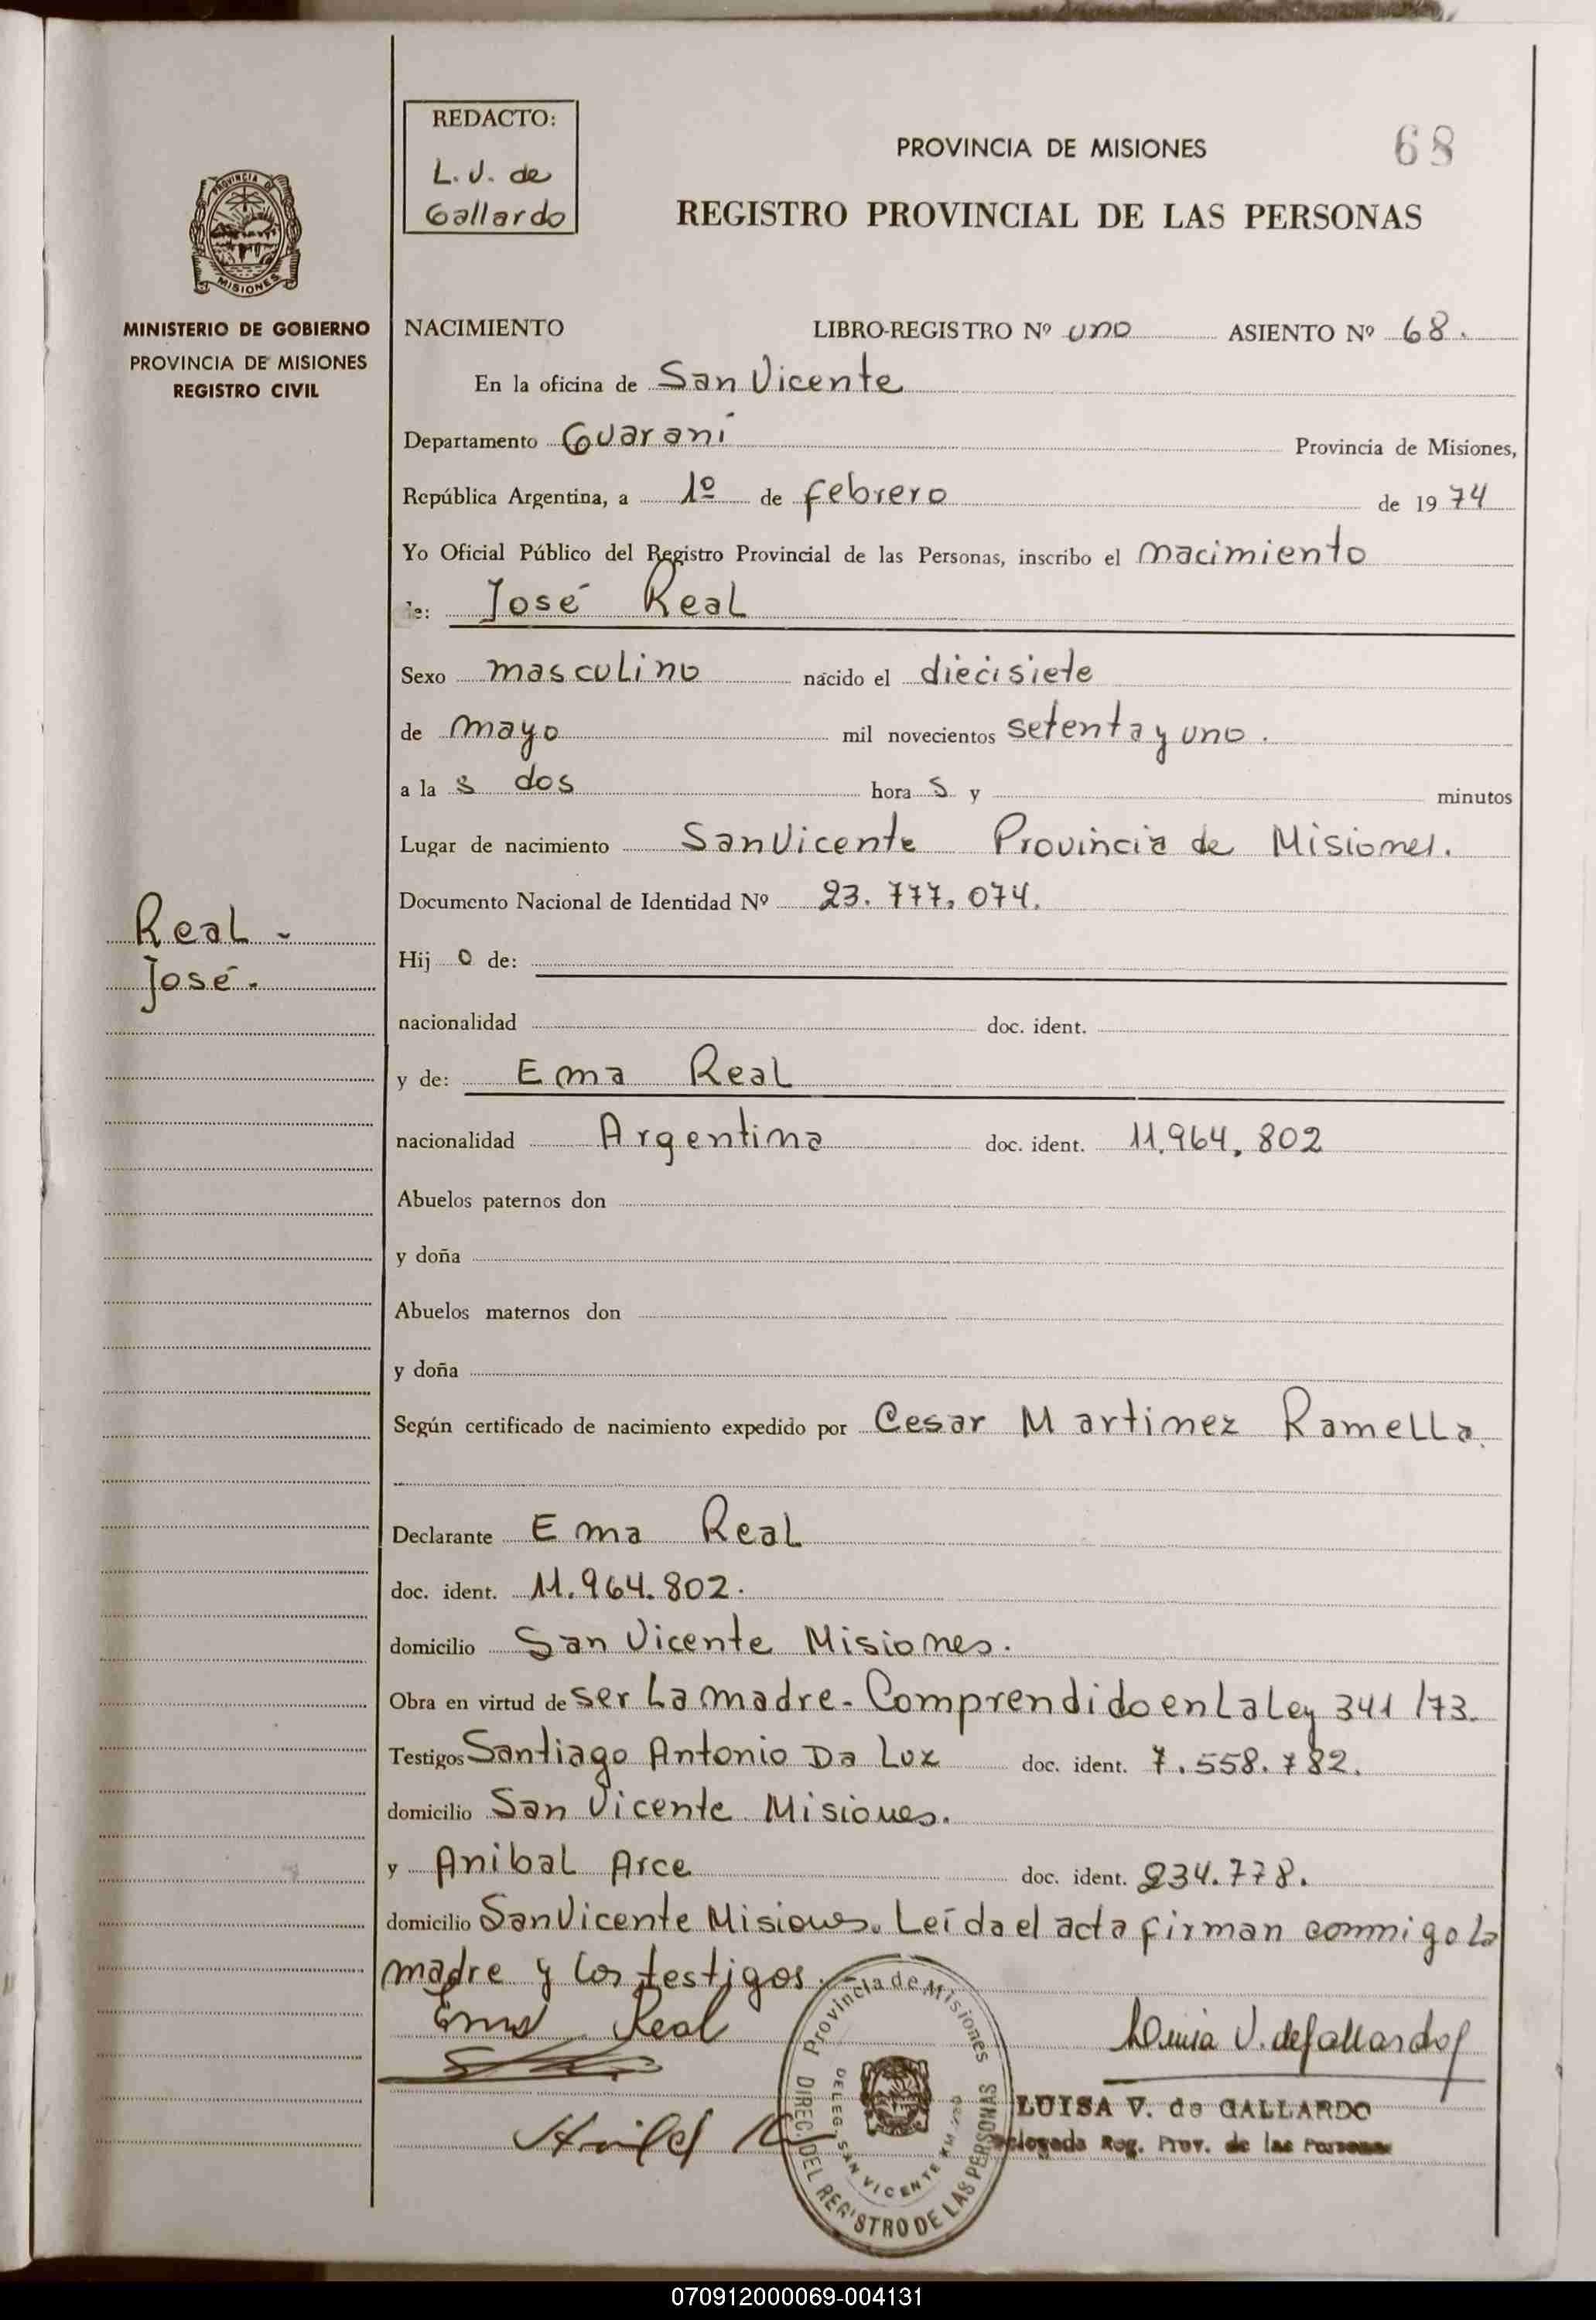 REDACTO:
L. V. de
Gallardo
PROVINCIA DE MISIONES
68
REGISTRO PROVINCIAL DE LAS PERSONAS
PROVINCIA DE
MISIONES
MINISTERIO DE GOBIERNO
PROVINCIA DE MISIONES
REGISTRO CIVIL
NACIMIENTO LIBRO-REGISTRO Nº uno ASIENTO Nº 68.
En la oficina de San Vicente
Departamento Guaraní Provincia de Misiones,
República Argentina, a 1º de febrero de 1974
Yo Oficial Público del Registro Provincial de las Personas, inscribo el nacimiento
de: José Real
Sexo masculino nacido el diecisiete
de mayo mil novecientos setenta y uno.
a las dos horas y minutos
Lugar de nacimiento San Vicente Provincia de Misiones.
Documento Nacional de Identidad Nº 23.777.074.
Real -
José.
Hijo de:
nacionalidad doc. ident.
y de: Ema Real
nacionalidad Argentina doc. ident. 11.964.802
Abuelos paternos don
y doña
Abuelos maternos don
y doña
Según certificado de nacimiento expedido por Cesar Martinez Ramella.
Declarante Ema Real
doc. ident. 11.964.802.
domicilio San Vicente Misiones.
Obra en virtud de ser La madre - Comprendido en La Ley 341/73.
Testigos Santiago Antonio Da Luz doc. ident. 7.558.782.
domicilio San Vicente Misiones.
y Anibal Arce doc. ident. 234.778.
domicilio San Vicente Misiones. Leída el acta firman conmigo la
madre y los testigos.-
Ema Real
Luisa V. de Gallardo
Provincia de Misiones
DIREC. DEL REGISTRO DE LAS PERSONAS
DELEG. SAN VICENTE
LUISA V. de GALLARDO
Delegada Reg. Prov. de las Personas
070912000069-004131